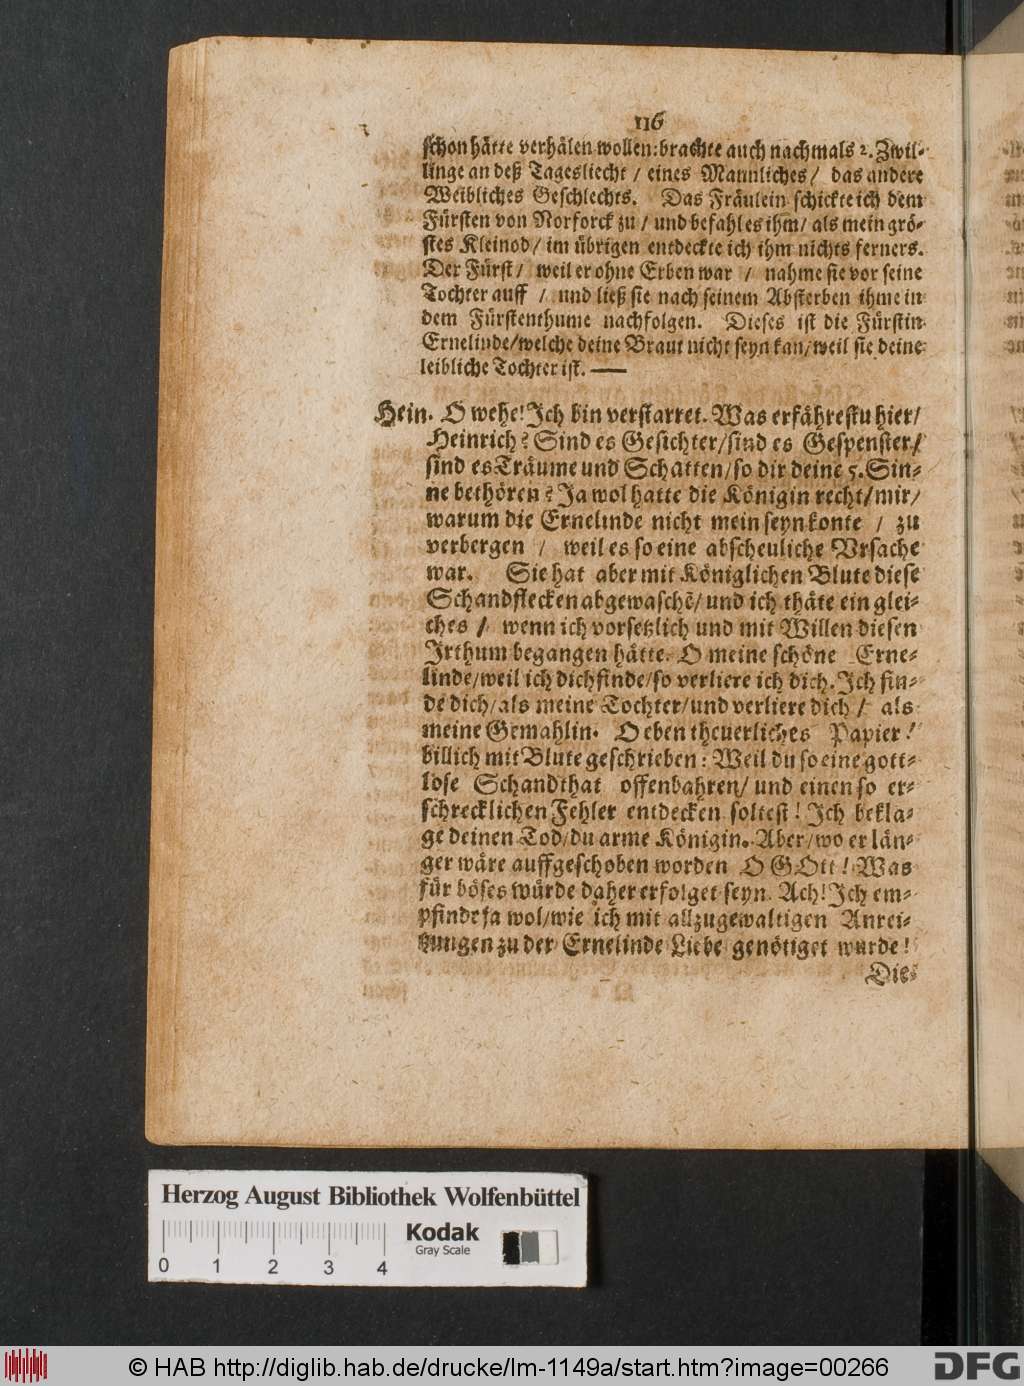 116
schon hätte verhälen wollen: brachte auch nachmals 2. Zwil-
linge an deß Tagesliecht / eines Mannliches / das andere
Weibliches Geschlechts. Das Fräulein schickte ich dem
Fürsten von Norforck zu / und befahl es ihm / als mein grö-
stes Kleinod / im übrigen entdeckte ich ihm nichts ferners.
Der Fürst / weil er ohne Erben war / nahme sie vor seine
Tochter auff / und ließ sie nach seinem Absterben ihme in
dem Fürstenthume nachfolgen. Dieses ist die Fürstin
Ernelinde / welche deine Braut nicht seyn kan / weil sie deine
leibliche Tochter ist. —
Hein. O wehe! Ich bin verstarret. Was erfährestu hier /
Heinrich? Sind es Gesichter / sind es Gespenster /
sind es Träume und Schatten / so dir deine 5. Sin-
ne bethören? Ja wol hatte die Königin recht / mir /
warum die Ernelinde nicht mein seyn konte / zu
verbergen / weil es so eine abscheuliche Ursache
war. Sie hat aber mit Königlichen Blute diese
Schandflecken abgewaschẽ / und ich thäte ein glei-
ches / wenn ich vorsetzlich und mit Willen diesen
Irthum begangen hätte. O meine schöne Erne-
linde / weil ich dich finde / so verliere ich dich. Ich fin-
de dich / als meine Tochter / und verliere dich / als
meine Gemahlin. O eben theuerliches Papier!
billich mit Blute geschrieben: Weil du so eine gott-
lose Schandthat offenbahren / und einen so er-
schrecklichen Fehler entdecken soltest! Ich bekla-
ge deinen Tod / du arme Königin. Aber / wo er län-
ger wäre auffgeschoben worden O GOtt! Was
für böses würde daher erfolget seyn. Ach! Ich em-
pfinde ja wol / wie ich mit allzugewaltigen Anrei-
tzungen zu der Ernelinde Liebe genötiget wurde!
Die-
Herzog August Bibliothek Wolfenbüttel
Kodak
Gray Scale
0 1 2 3 4
© HAB http://diglib.hab.de/drucke/lm-1149a/start.htm?image=00266
DFG